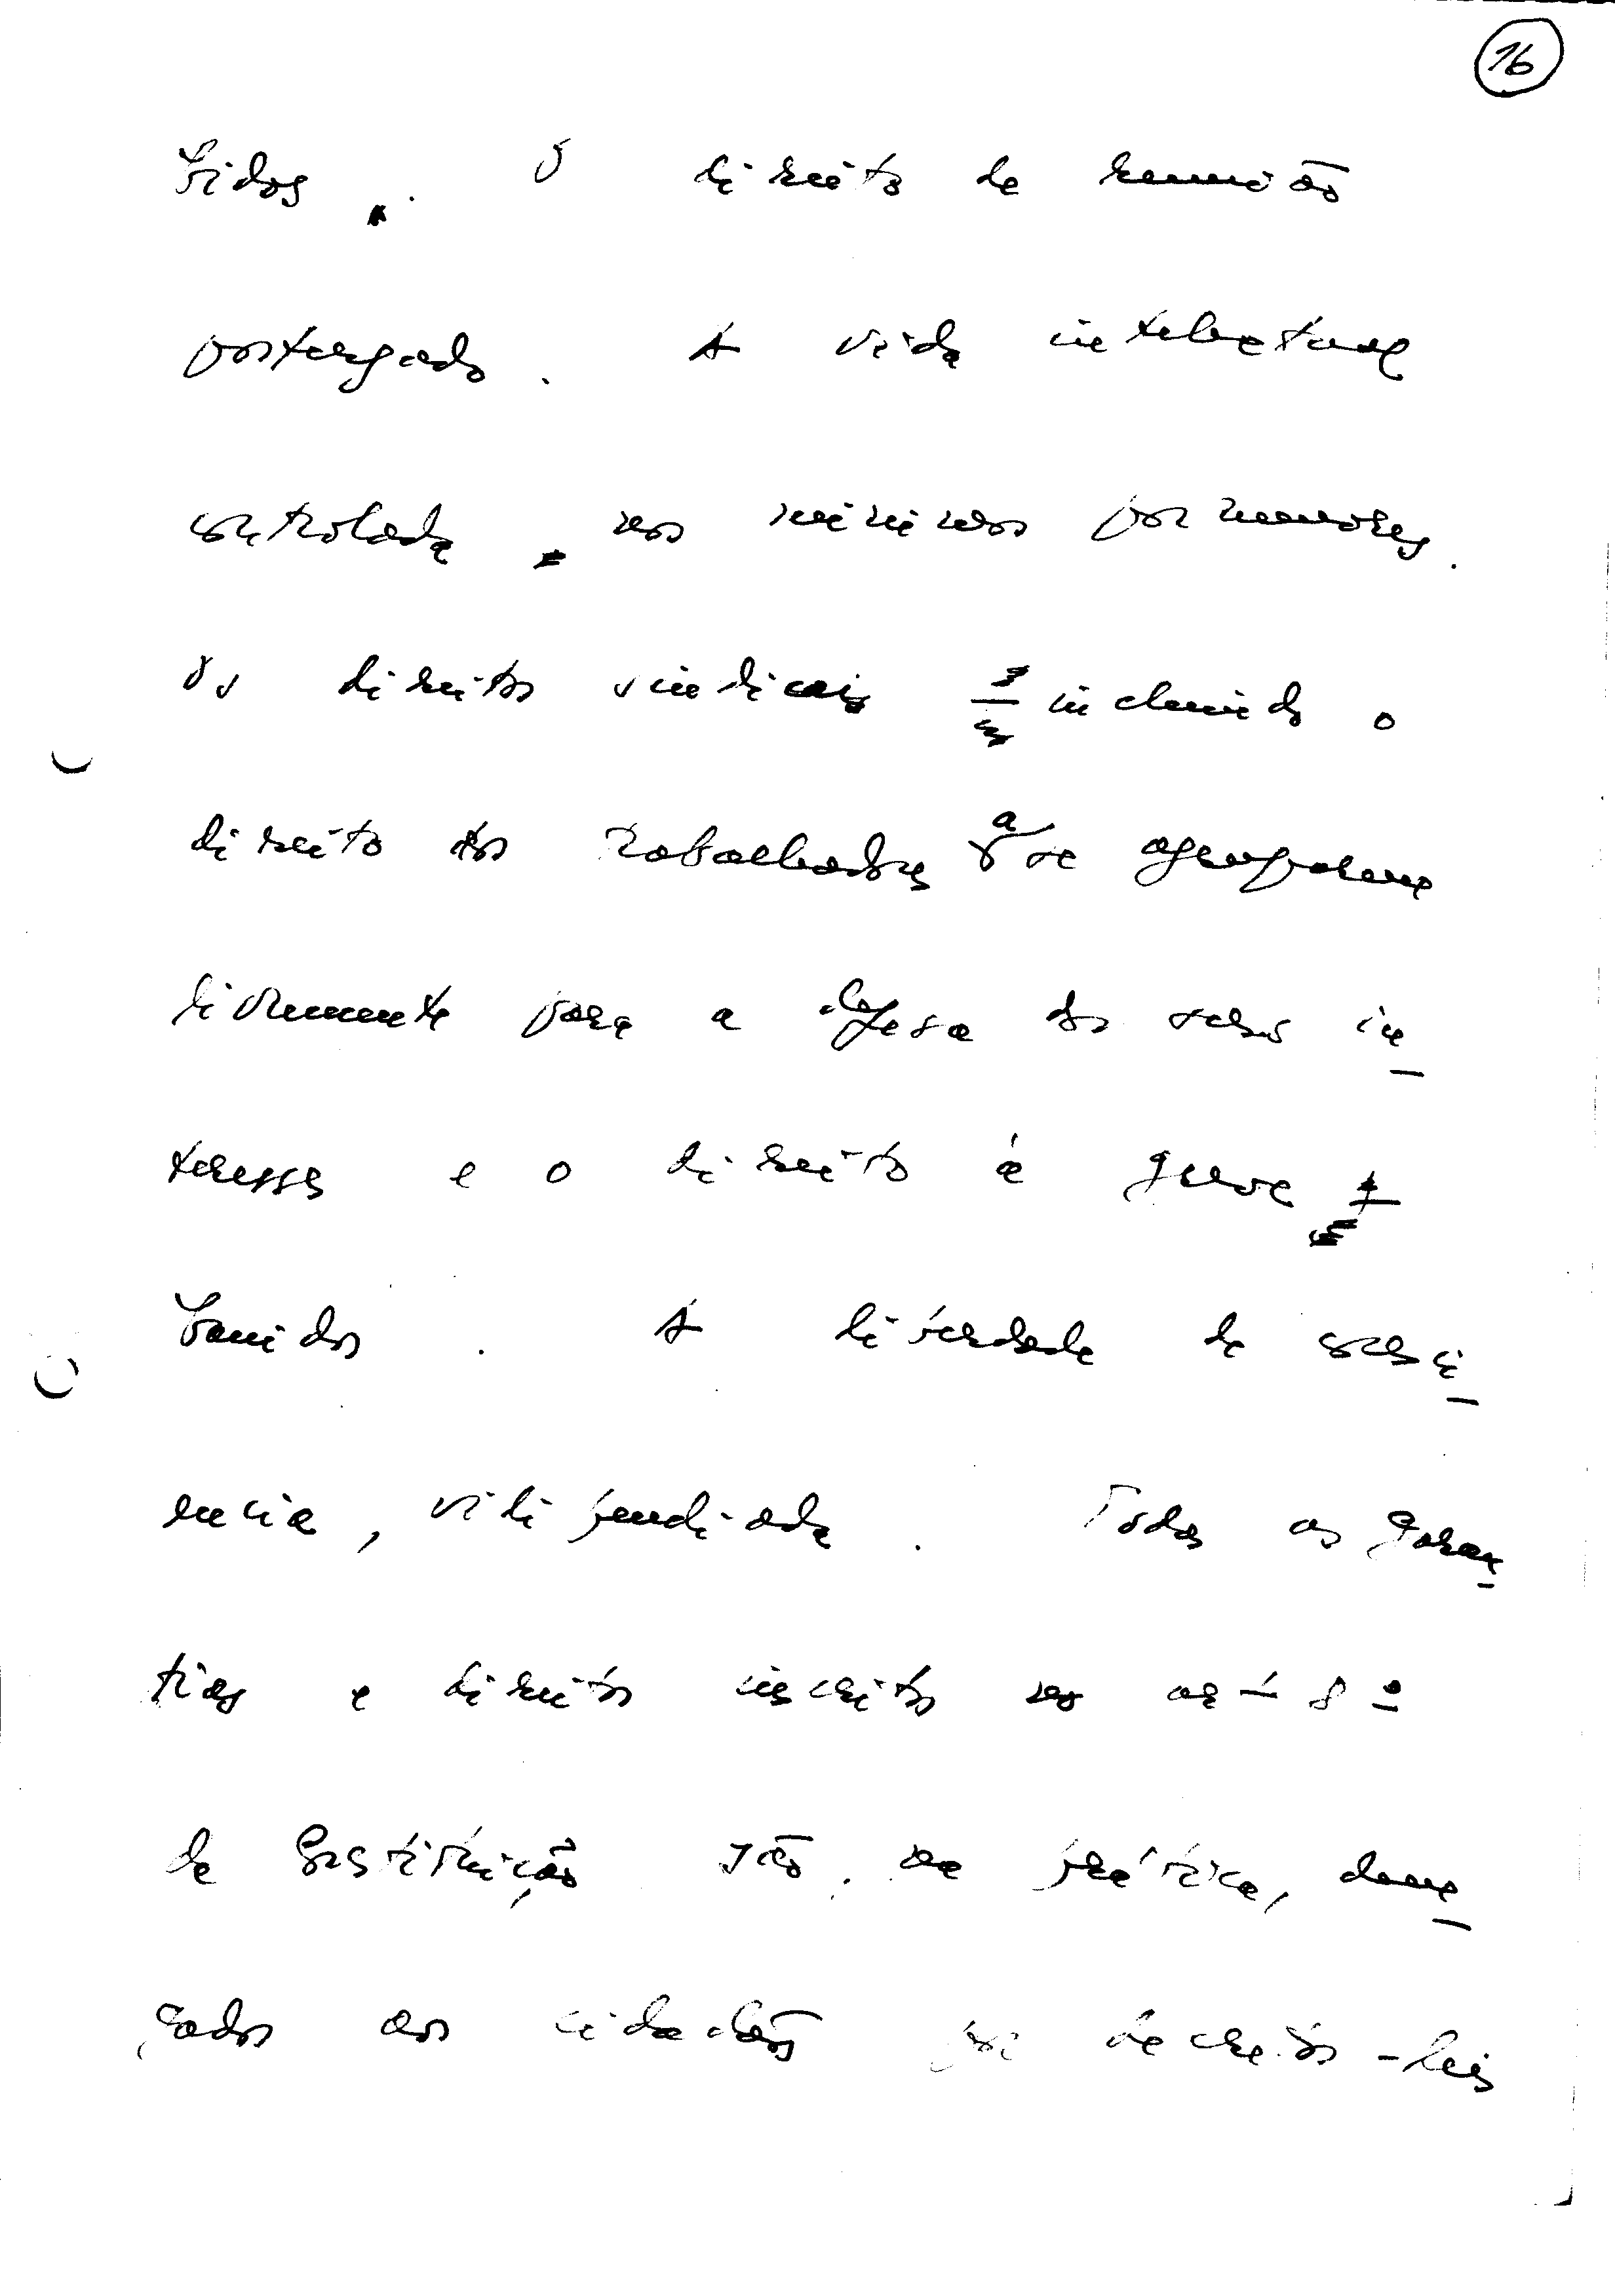 16
bidos. O direito de reunião
postergado. A vida intelectual
controlada, nos mínimos pormenores.
Os direitos sindicais — incluindo o
direito dos trabalhadores a se agruparem
livremente para a defesa dos seus in-
teresses e o direito à greve —
banidos. A liberdade de consci-
ência, vilipendiada. Todas as garan-
tias e direitos inscritos no art 8º
da Constituição são, na prática, dene-
gados aos cidadãos por decretos-leis